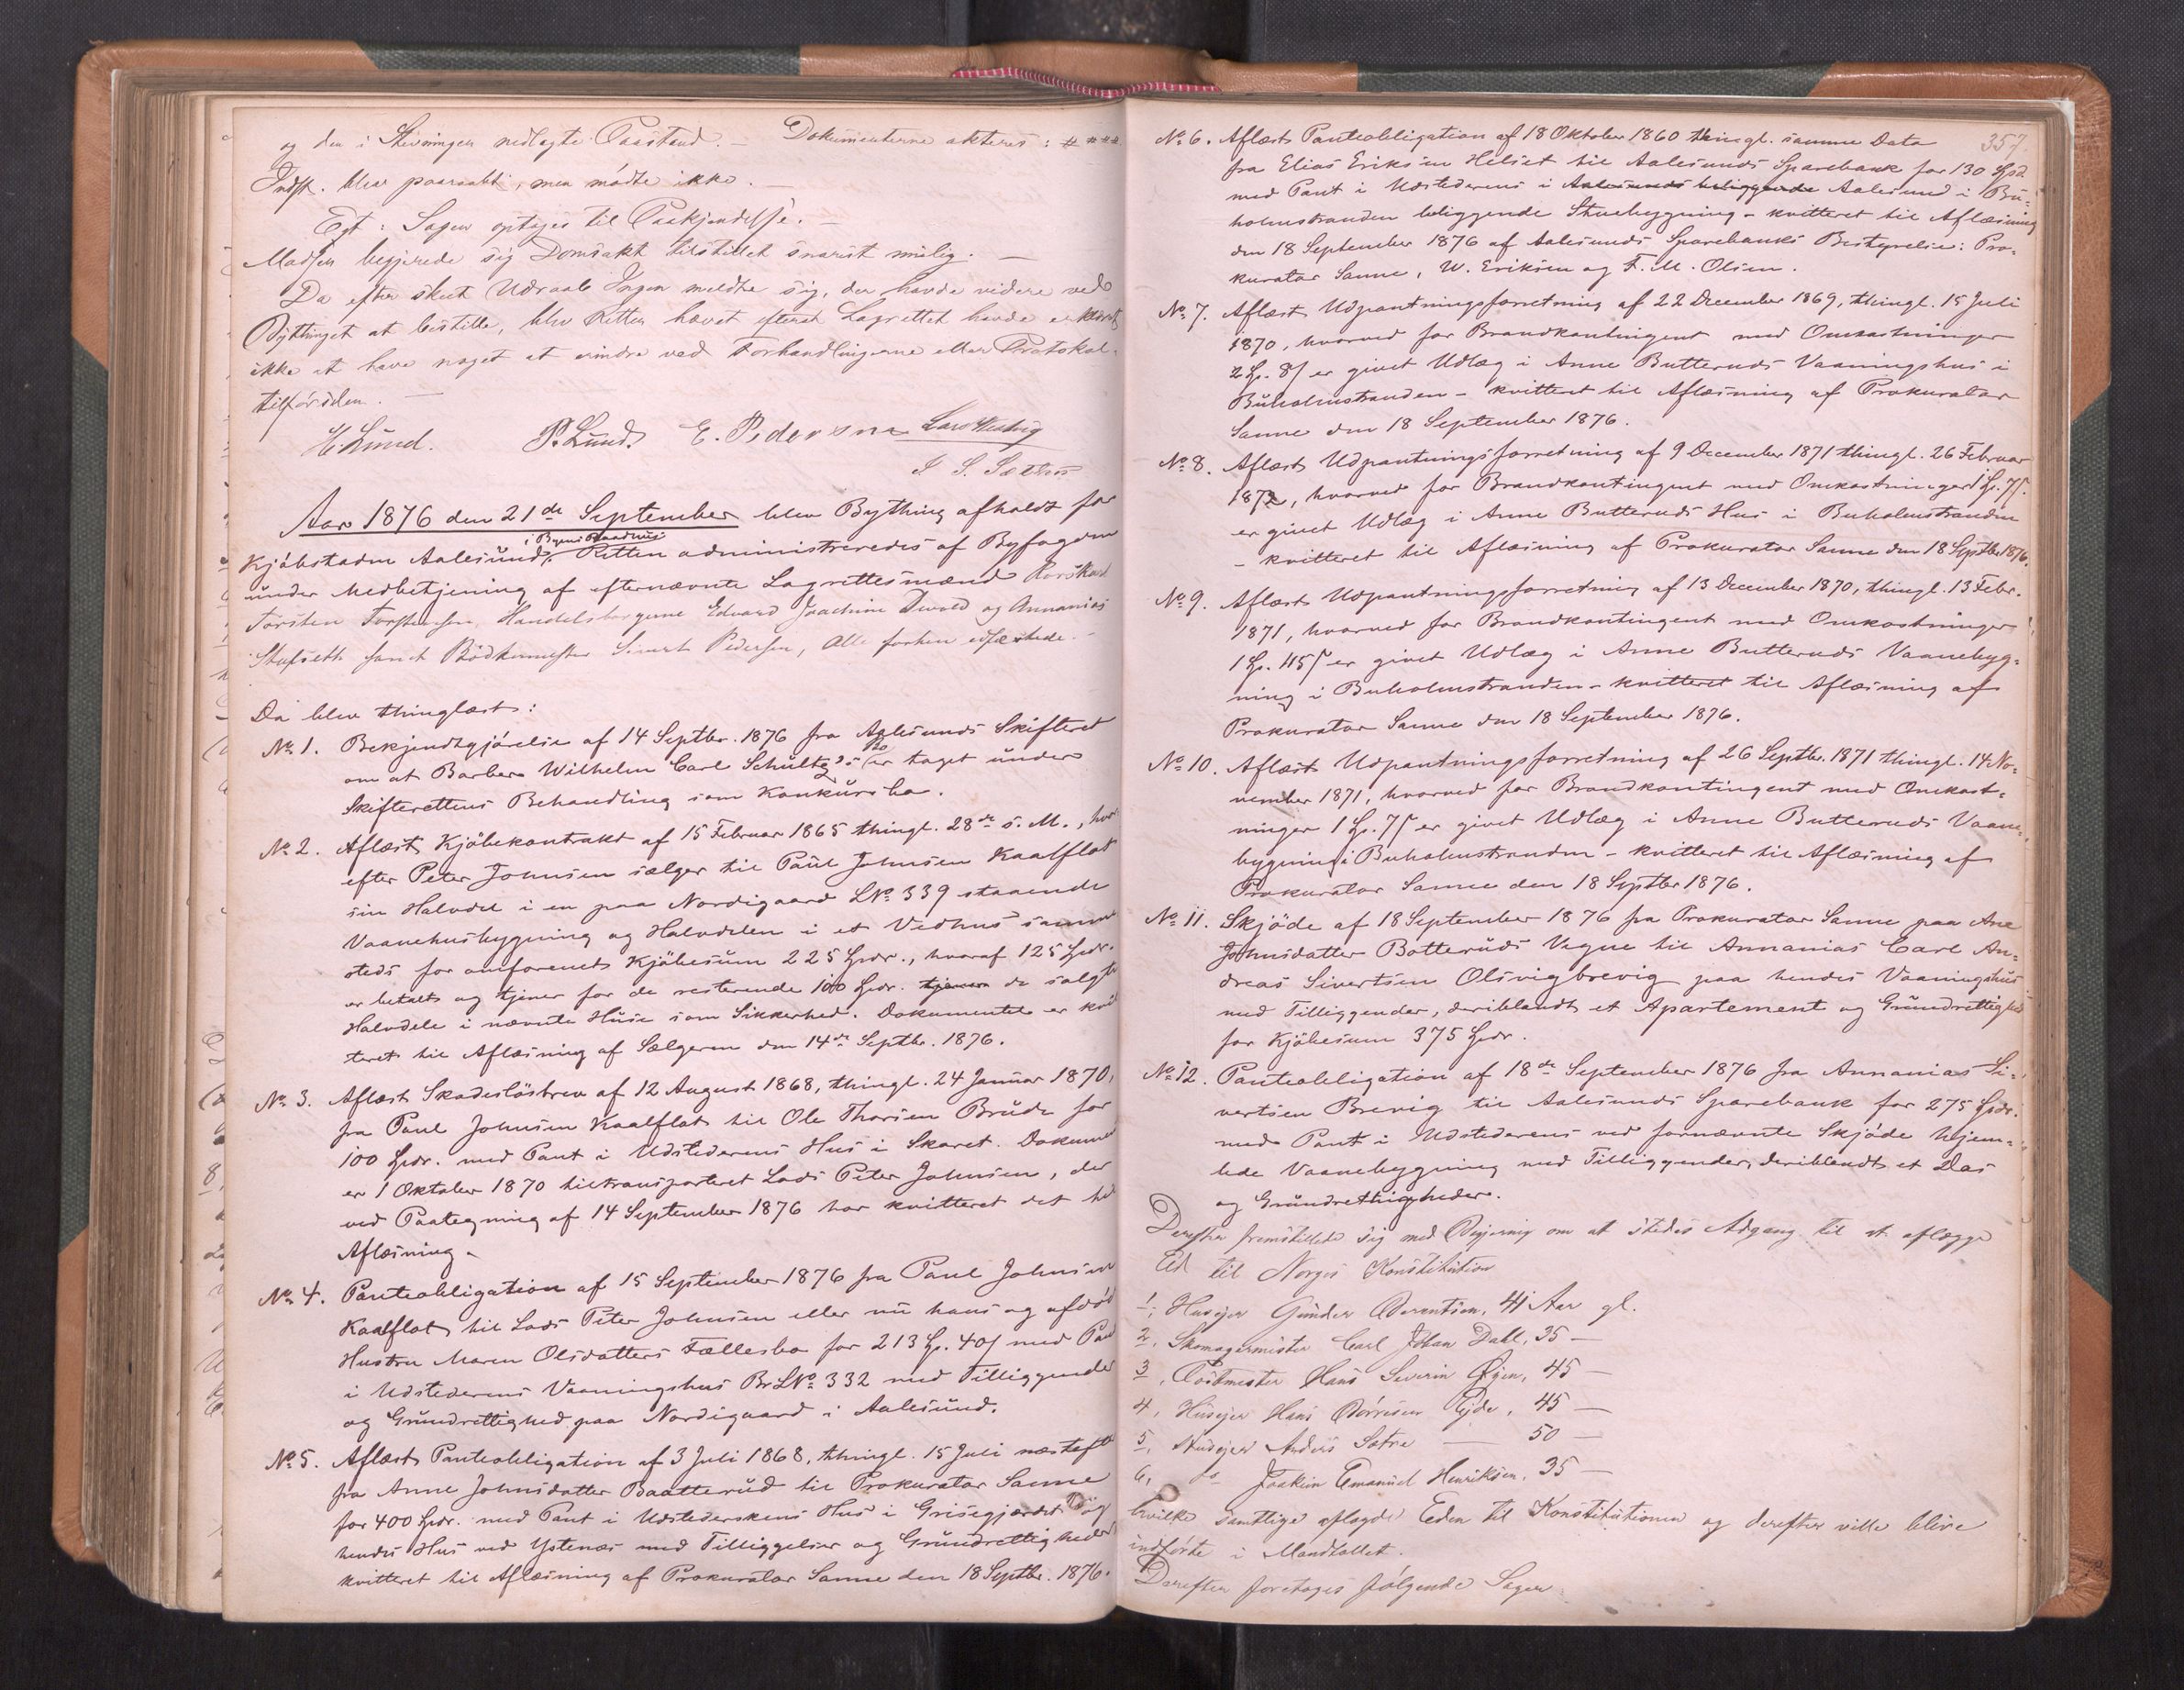 og den i Stevningen nedlagte Paastand. — Dokumenterne akteres: # * * *.
Indst. blev paaraabt, men mødte ikke. —
Egt: Sagen optages til Paakjendelse. —
Madsen begjerede sig Domsakt tilstillet snarest mulig. —
Da efter skeet Udraab Ingen meldte sig, der havde videre ved
Bythinget at bestille, blev Retten hævet efterat Lagrettet havde erklæret
ikke at have noget at erindre ved Forhandlingerne eller Protokol-
tilførslen. —
H. Lund. P. Lund. E. Pedersen
Aar 1876 den 21de September blev Bything afholdt for
i Byens Raadhus
Kjøbstaden Aalesund, Retten administreredes af Byfogden
under Medbetjening af efternævnte Lagrettesmænd
Torsten Torstensen, Handelsborgerne Edvard Joachim Devold og Annanias
samt Bødkermester Sivert Pedersen, Alle forhen edfæstede. -
Da blev thinglæst:
No 1. Bekjendtgjørelse af 14 Septbr. 1876 fra Aalesunds Skifteret
om at Barber Wilhelm Carl Schultz's Bo er taget under
Skifterettens Behandling som Konkursbo.
No 2. Aflæst Kjøbekontrakt af 15 Februar 1865 thingl. 28de s. M., hvor-
efter Peter Johnsen sælger til Paul Johnsen Kaalflot
sin Halvdel i en paa Nordigaard LNo 339 staaende
Vaanehusbygning og Halvdelen i et Vedhus samme
steds for omforenet Kjøbesum 225 Spdr., hvoraf 125 Spdr.
er betalt og tjener for de resterende 100 Spdr. tjener de solgte
Halvdele i nævnte Huse som Sikkerhed. Dokumentet er kvit-
teret til Aflæsning af Sælgeren den 14de Septbr. 1876.
No 3. Aflæst Skadesløsbrev af 12 August 1868, thingl. 24 Januar 1870,
fra Paul Johnsen Kaalflot til Ole Thorsen Brude for
100 Spdr. med Pant i Udstederens Hus i Skaret. Dokumen
er 1 Oktober 1870 tiltransporteret Lods Peter Johnsen, der
ved Paategning af 14 September 1876 har kvitteret det til
Aflæsning.
No 4. Panteobligation af 15 September 1876 fra Paul Johnsen
Kaalflot til Lods Peter Johnsen eller nu hans og afdød
Hustru Maren Olsdatters Fællesbo for 213 Sp. 40 s med Pant
i Udstederens Vaaningshus Br.LNo 332 med Tilliggender
og Grundrettighed paa Nordigaard i Aalesund.
No 5. Aflæst Panteobligation af 3 Juli 1868, thingl. 15 Juli næstefter
fra Anne Johnsdatter Baatterud til Prokurator Sanne
for 400 Spdr. med Pant i Udstederskens Hus i Grisegjærdet og
hendes Hus ved Ystenæs med Tilliggelser og Grundrettigheder
kvitteret til Aflæsning af Prokurator Sanne den 18 Septbr. 1876.
357.
No 6. Aflæst Panteobligation af 18 Oktober 1860 thingl. samme Dato
fra Elias Eriksen Helset til Aalesunds Sparebank for 130 Spd.
med Pant i Udstederens i Aalesunds beliggende Aalesund i Bu-
holmstranden beliggende Stuebygning - kvitteret til Aflæsning
den 18 September 1876 af Aalesunds Sparebanks Bestyrelse: Pro-
kurator Sanne, W. Eriksen og F. M. Olsen.
No 7. Aflæst Udpantningsforretning af 22 December 1869, thingl. 15 Juli
1870, hvorved for Brandkontingent med Omkostninger
2 Sp. 8 s er givet Udlæg i Anne Butteruds Vaaningshus i
Buholmstranden - kvitteret til Aflæsning af Prokurator
Sanne den 18 September 1876.
No 8. Aflæst Udpantningsforretning af 9 December 1871 thingl. 26 Februar
1872, hvorved for Brandkontingent med Omkostninger 1 Sp. 7 s.
er givet Udlæg i Anne Butteruds Hus i Buholmstranden
- kvitteret til Aflæsning af Prokurator Sanne den 18 Septbr 1876.
No 9. Aflæst Udpantningsforretning af 13 December 1870, thingl. 13 Febr.
1871, hvorved for Brandkontingent med Omkostninger
1 Sp. 115 s er givet Udlæg i Anne Butteruds Vaanebyg-
ning i Buholmstranden - kvitteret til Aflæsning af
Prokurator Sanne den 18 September 1876.
No 10. Aflæst Udpantningsforretning af 26 Septbr. 1871 thingl. 14 No-
vember 1871, hvorved for Brandkontingent med Omkost-
ninger 1 Sp. 7 s er givet Udlæg i Anne Butteruds Vaane-
bygning i Buholmstranden - kvitteret til Aflæsning af
Prokurator Sanne den 18 Septbr 1876.
No 11. Skjøde af 18 September 1876 fra Prokurator Sanne paa Ane
Johnsdatter Botteruds Vegne til Annanias Carl An-
dreas Sivertsen Olsvigbrevig paa hendes Vaaningshus
med Tilliggender, deriblandt et Apartement og Grundrettighed
for Kjøbesum 375 Spdr.
No 12. Panteobligation af 18de September 1876 fra Annanias Si-
vertsen Brevig til Aalesunds Sparebank for 275 Spdr.
med Pant i Udstederens ved fornævnte Skjøde hjem-
lede Vaanebygning med Tilliggender, deriblandt et Das
og Grundrettigheder.
Derefter fremstillede sig med Begjering om at stedes Adgang til at aflægge
Ed til Norges Konstitution
1, Husejer Gunder Berentsen, 41 Aar gl.
2, Skomagermester Carl Johan Dahl, 35 —
3, Postmester Hans Severin Øyen, 45 —
4, Husejer Hans Børresen Ejde, 45 —
5, Husejer Anders Sætre — 50 —
6, do Joakim Emanuel Henriksen, 35 —
hvilke samtlige aflagde Eden til Konstitutionen og derefter ville blive
indførte i Mandtallet.
Derefter foretoges følgende Sager: